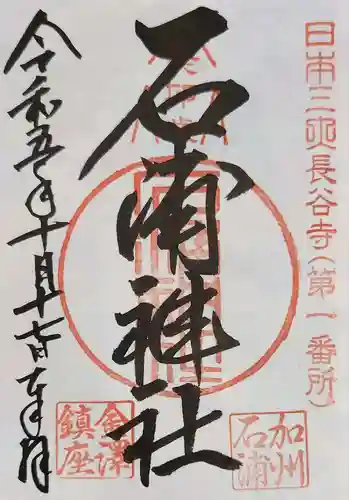 日本三興長谷寺(第一番所)
石浦神社
令和五年十月十七日奉拝
加州
石浦
金澤
鎮座